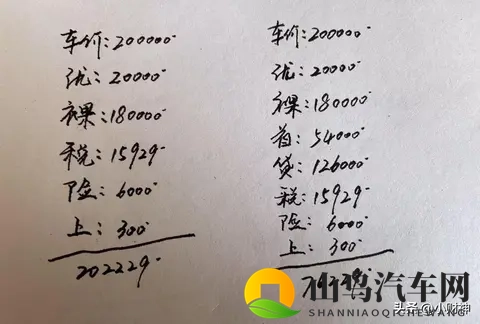 车价:200000
优:20000
裸:180000
税:15929
险:6000
上:300
202229
车价:200000
优:20000
裸:180000
首:54000
贷:126000
税:15929
险:6000
上:300
仙鸟汽车网
SHANNIAOQICHEWANG
头条@小财神